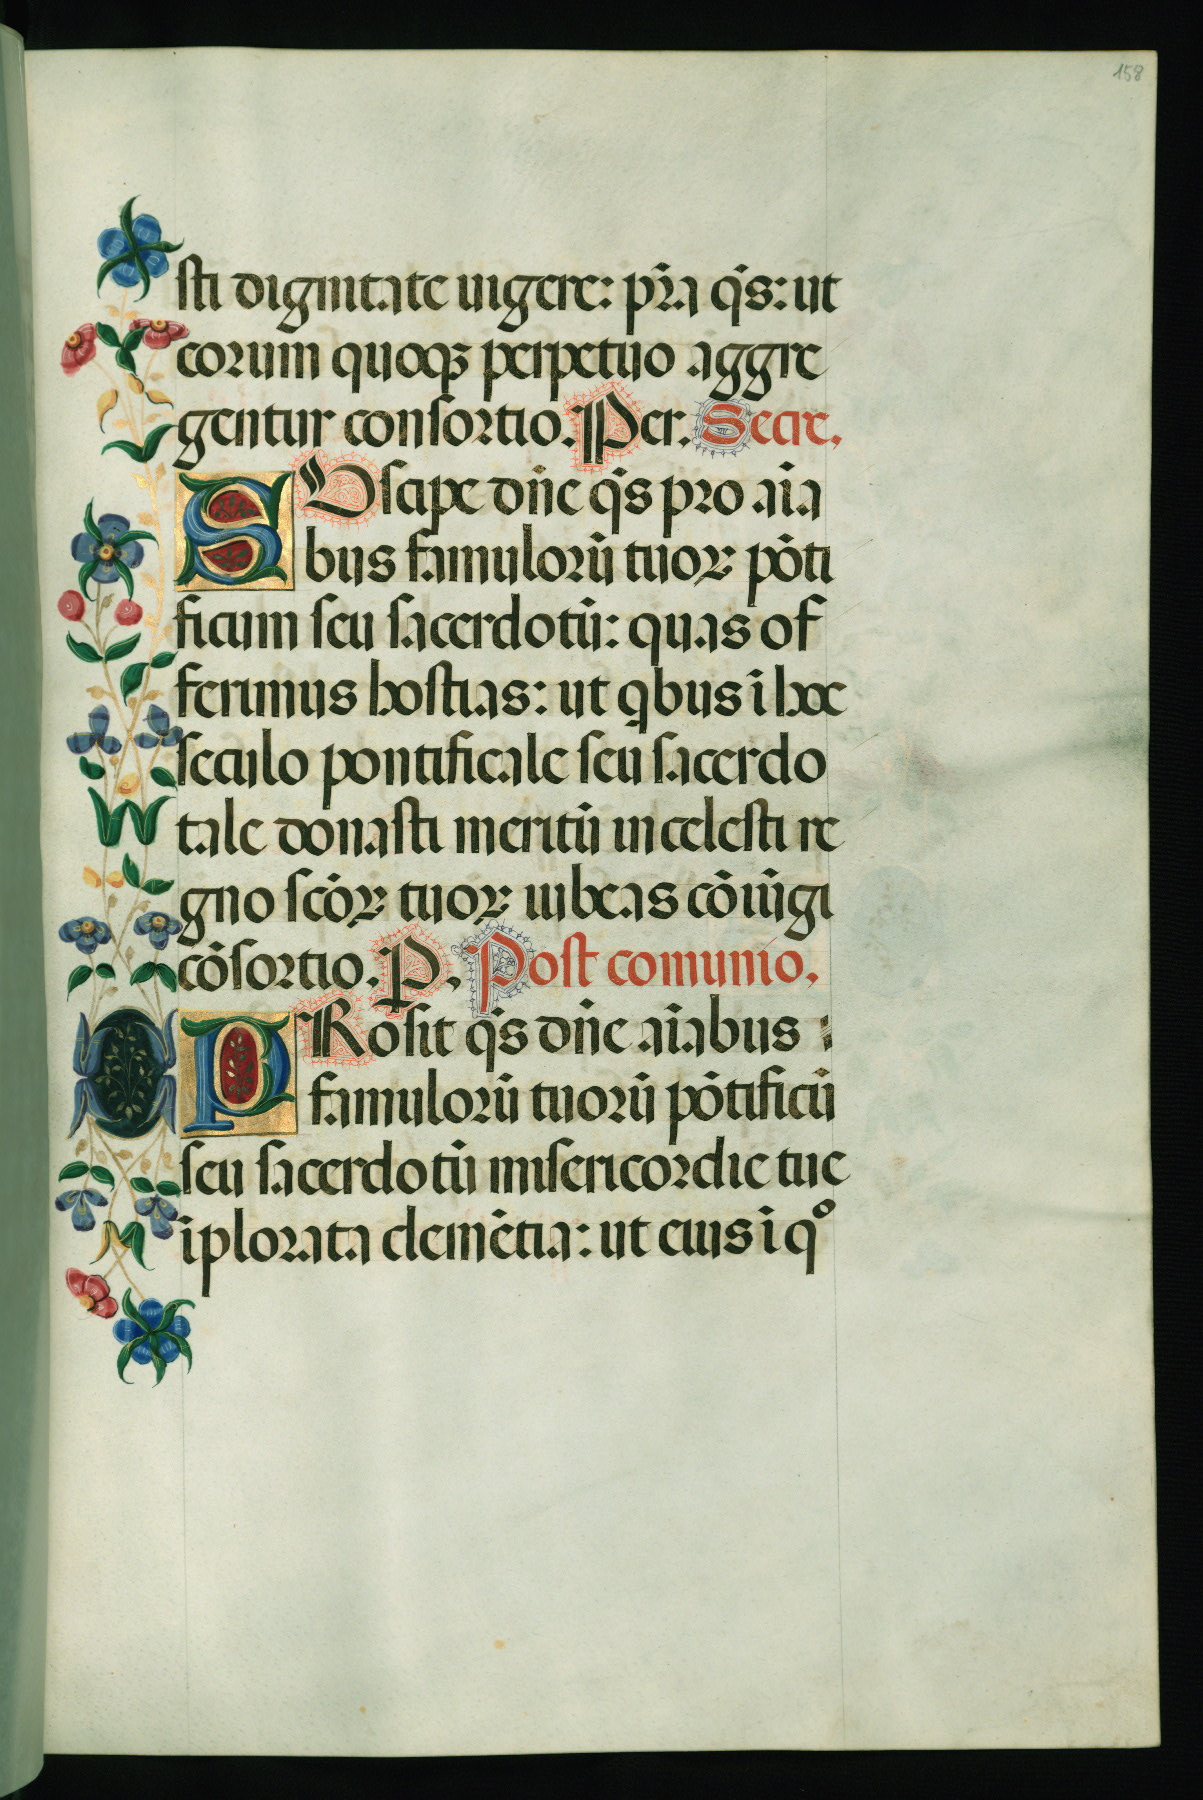 158
sti dignitate uigere: pr̄a q̄s: ut
eorum quoqꝫ perpetuo aggre
gentur consortio. Per. Secre.
SUscipe dn̄e q̄s pro aīa
bus famulorū tuoꝝ pōti
ficum seu sacerdotū: quas of
ferimus hostias: ut qbus ī hoc
seculo pontificale seu sacerdo
tale donasti meritū in celesti re
gno scōꝝ tuoꝝ iubeas cōiūgi
cōsortio. P. Post comunio.
PRosit q̄s dn̄e aīabus
famulorū tuorū pōtificū
seu sacerdotū misericordie tue
īplorata clemētia: ut eius ī qº